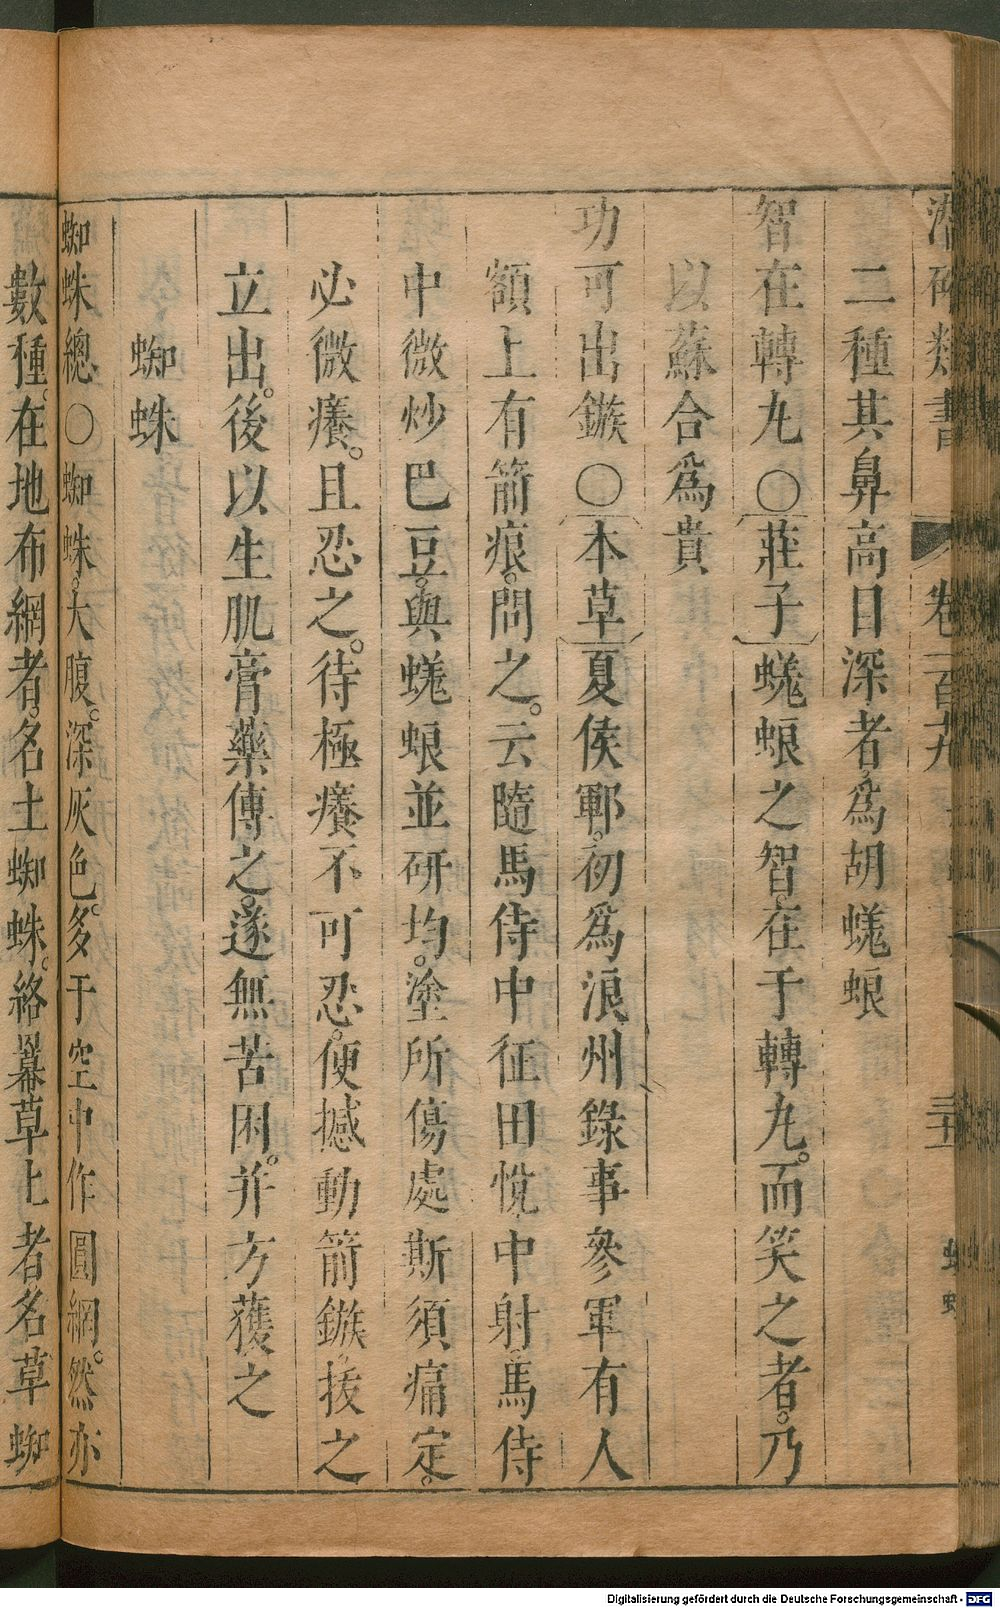 潛確類書 卷一百九
二種其鼻高目深者爲胡蜣蜋
智在轉丸○〔莊子〕蜣蜋之智在于轉丸。而笑之者。乃
以蘇合爲貴
功可出鏃○〔本草〕夏侯鄆。初爲浪州錄事參軍有人
額上有箭痕。問之。云隨馬侍中征田悅中射。馬侍
中微炒巴豆。與蜣蜋並研均。塗所傷處斯須痛定。
必微癢。且忍之。待極癢不可忍。便撼動箭鏃。拔之
立出。後以生肌膏藥傅之。遂無苦困。并方獲之
蜘蛛
蜘蛛總○蜘蛛。大腹。深灰色。多于空中作圓網。然亦
數種。在地布網者。名土蜘蛛。絡幕草上者名草蜘
Digitalisierung gefördert durch die Deutsche Forschungsgemeinschaft - DFG